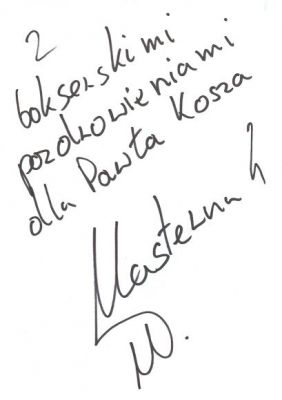 Z
bokserskimi
pozdrowieniami
dla Pawła Kosza
Masternak
M.